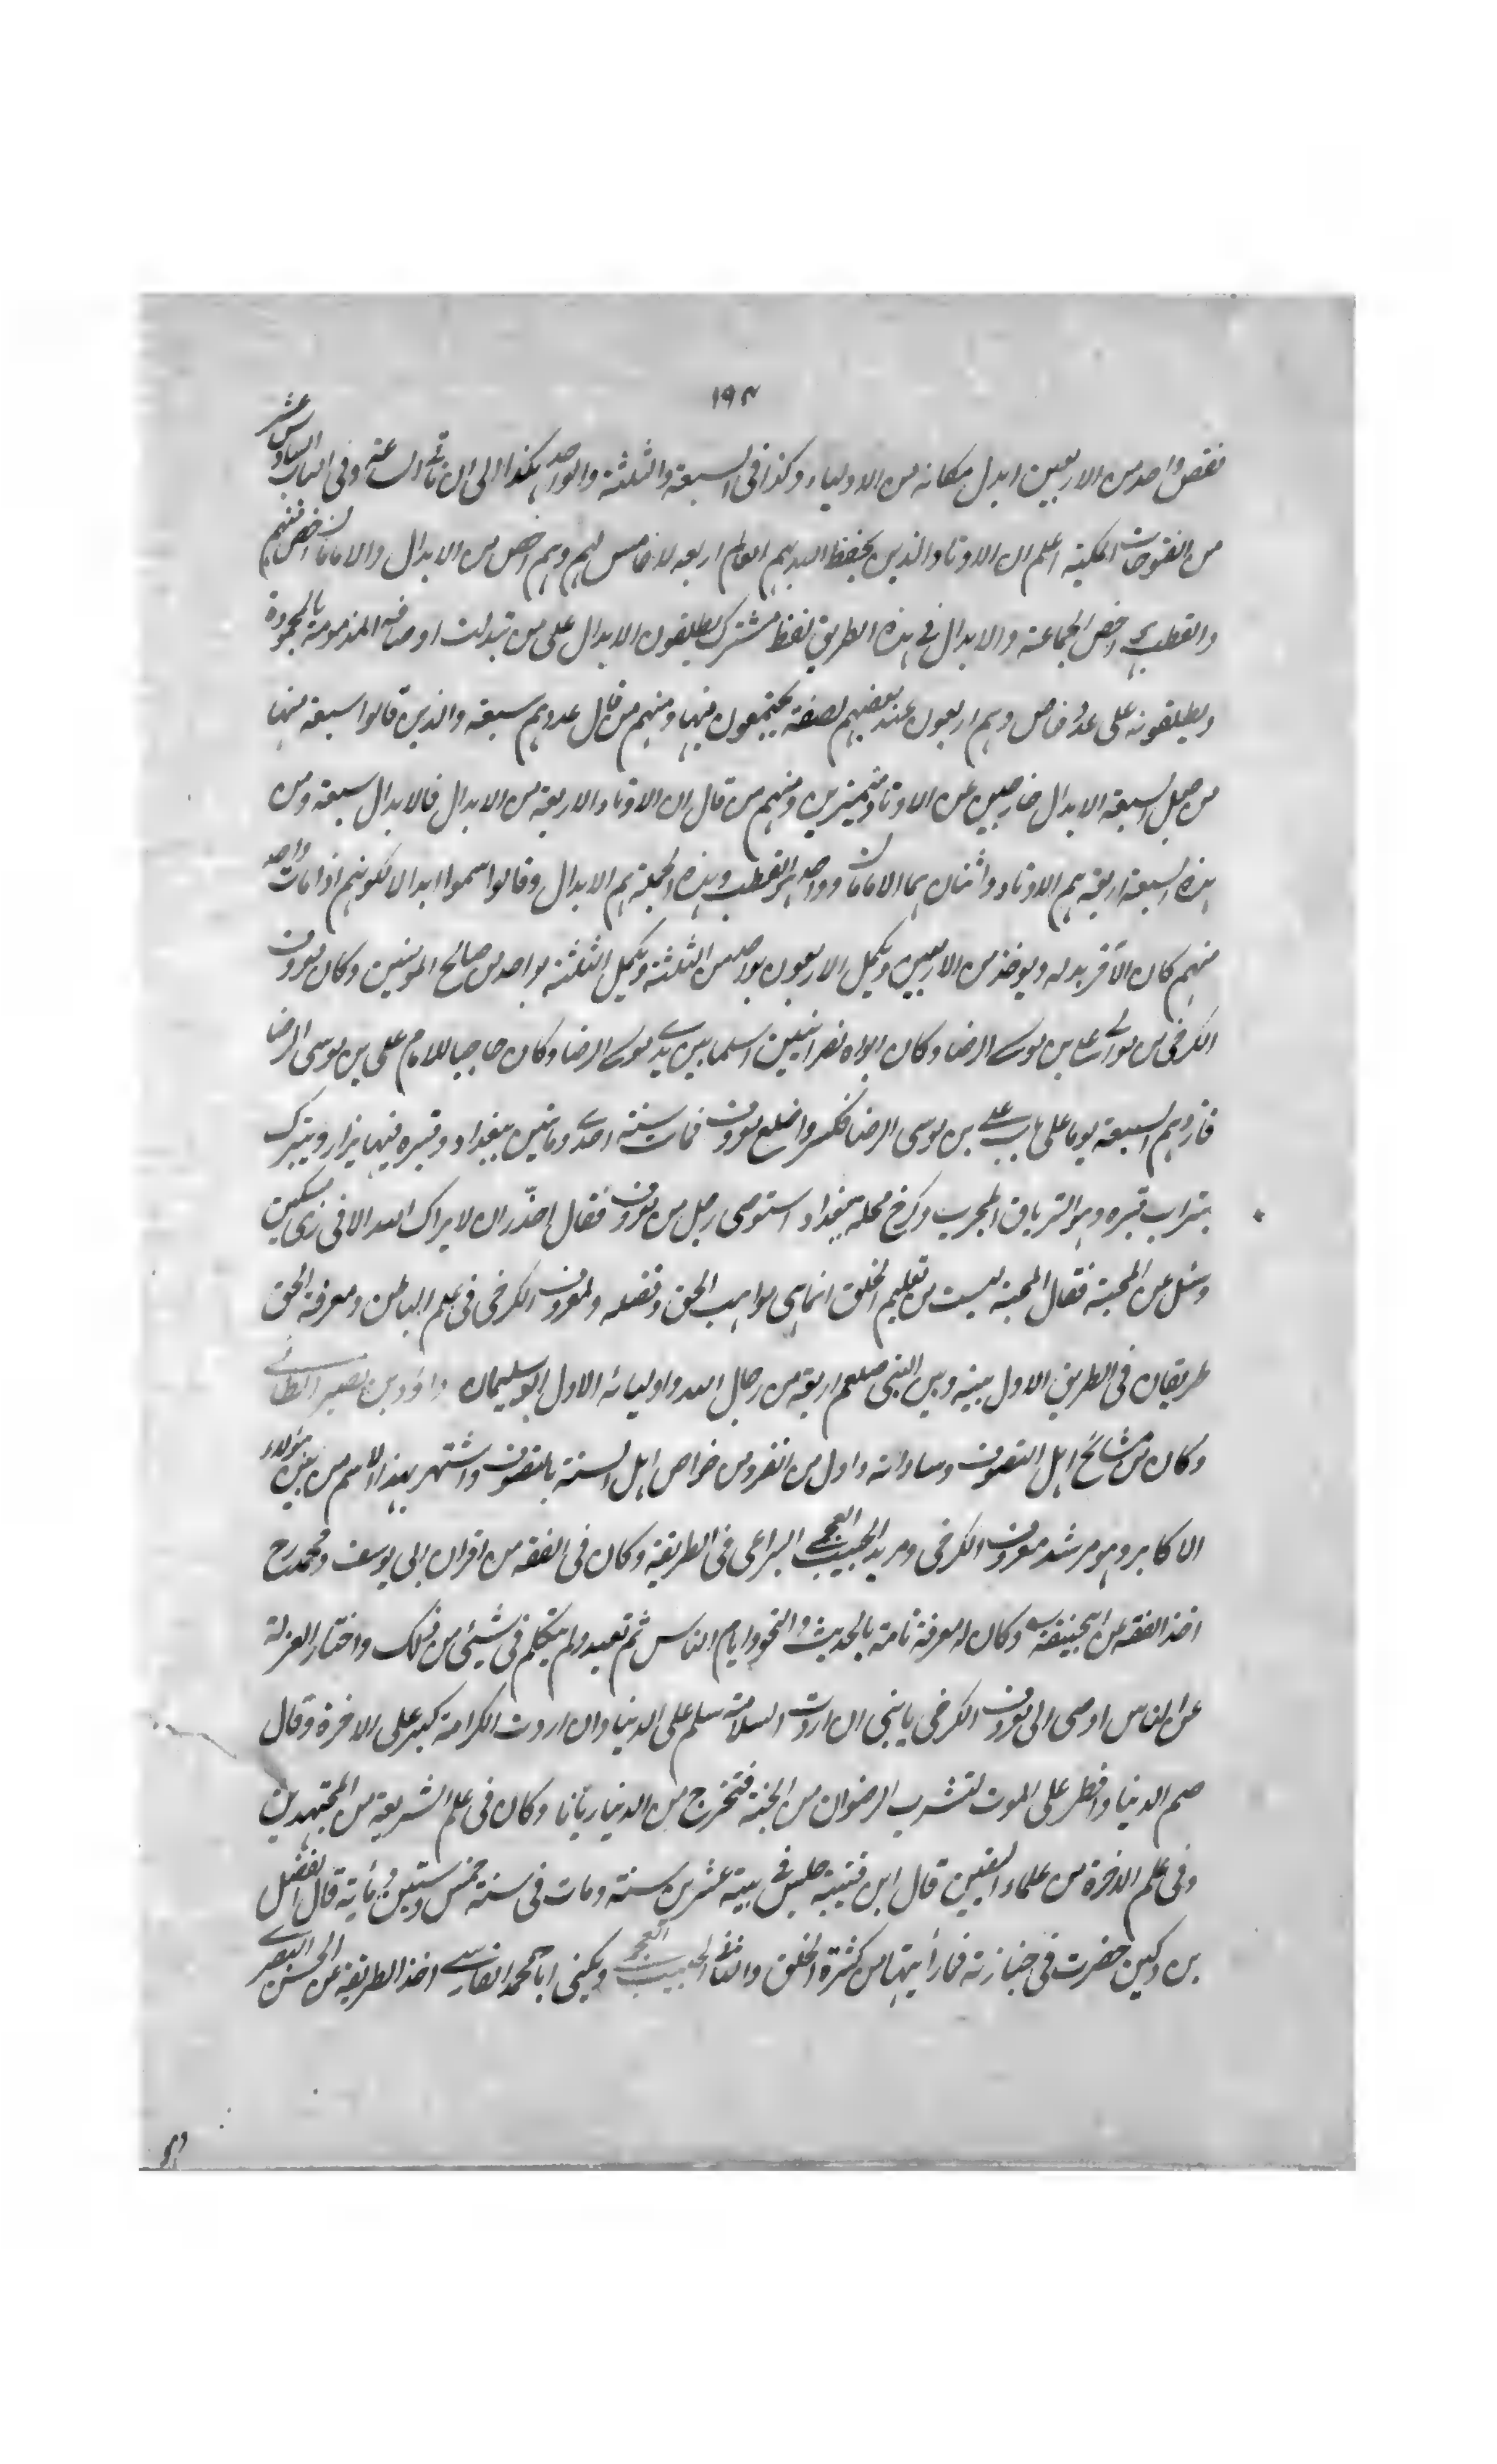 ١٩٤
نقص واحد من الاربعين ابدل مكانه من الاولياء وكذا فى السبعة والثلثة والواحد هكذا الى ان تأتى الساعة وفى الباب السادس عشر
من الفتوحات المكية اعلم ان الاوتاد الذين يحفظ الله بهم العالم اربعة لا خامس لهم وهم اخص من الابدال والامامان اخص منهم
والقطب اخص الجماعة والابدال فى هذه الطريق لفظ مشترك يطلقون الابدال على من تبدلت اوصافه المذمومة بالمحمودة
ويطلقونه على عدد خاص وهم اربعون عند بعضهم لصفة يجتمعون فيها ومنهم من قال عددهم سبعة والذين قالوا سبعة منها
من جعل السبعة الابدال خارجين عن الاوتاد متميزين ومنهم من قال ان الاوتاد الاربعة من الابدال فالابدال سبعة ومن
هذه السبعة اربعة هم الاوتاد واثنان هما الامامان وواحد هو القطب وهذه الجملة هم الابدال وقالوا سموا ابدالا لكونهم اذا مات واحد
منهم كان الآخر بدله ويوخذ من الاربعين ويكمل الاربعون بواحد من الثلثة ويكمل الثلثة بواحد من صالح المومنين وكان معروف
الكرخى من موالى على بن موسى الرضا وكان ابواه نصرانيين اسلما بين يدى موسى الرضا وكان حاجبا للامام على بن موسى الرضا
فازدهم السبعة يوما على باب على بن موسى الرضا فكسروا ضلع معروف فمات سنة احدى ومائتين ببغداد وقبره فيها يزار ويتبرك
بتراب قبره وهو الترياق المجرب وكرخ محلة ببغداد استوصى رجل من معروف فقال احذر ان لا يراك الله الا فى زى مسكين
وسئل عن المحبة فقال المحبة ليست من تعليم الخلق انما هى مواهب الحق وفضله ولمعروف الكرخى فى علم الباطن ومعرفة الحق
طريقان فى الطريق الاول بينه وبين النبى صلعم اربعة من رجال الله واوليائه الاول ابو سليمان داؤد بن نصير الطائى
وكان من مشائخ اهل التصوف وساداته واول من انفرد من خواص اهل السنة بالتصوف واشتهر بهذا الاسم من بين هؤلاء
الاكابر وهو مرشد معروف الكرخى ومريد الحبيب العجمى الراعى فى الطريقة وكان فى الفقه من اقران ابى يوسف ومحمد رح
اخذ الفقه من ابيحنيفة وكان له معرفة تامة بالحديث والنحو وايام الناس ثم تعبد ولم يتكلم فى شيئ من ذلك واختار العزلة
عن الناس اوصى الى معروف الكرخى يا بنى ان اردت السلامة سلم على الدنيا وان اردت الكرامة كبر على الاخرة وقال
صم الدنيا وافطر على الموت لتشرب الرضوان من الجنة فتخرج من الدنيا ريانا وكان فى علم الشريعة من المجتهدين
وفى علم الاخرة من علماء اليقين قال ابن قتيبة جلس فى بيته عشرين سنة ومات فى سنة خمس وستين ومأية قال الفضل
بن دكين حضرت فى جنازته فما رأيتها من كثرة الخلق والثانى الحبيب العجمى ويكنى ابا محمد الفارسى اخذ الطريقة من الحسن البصرى